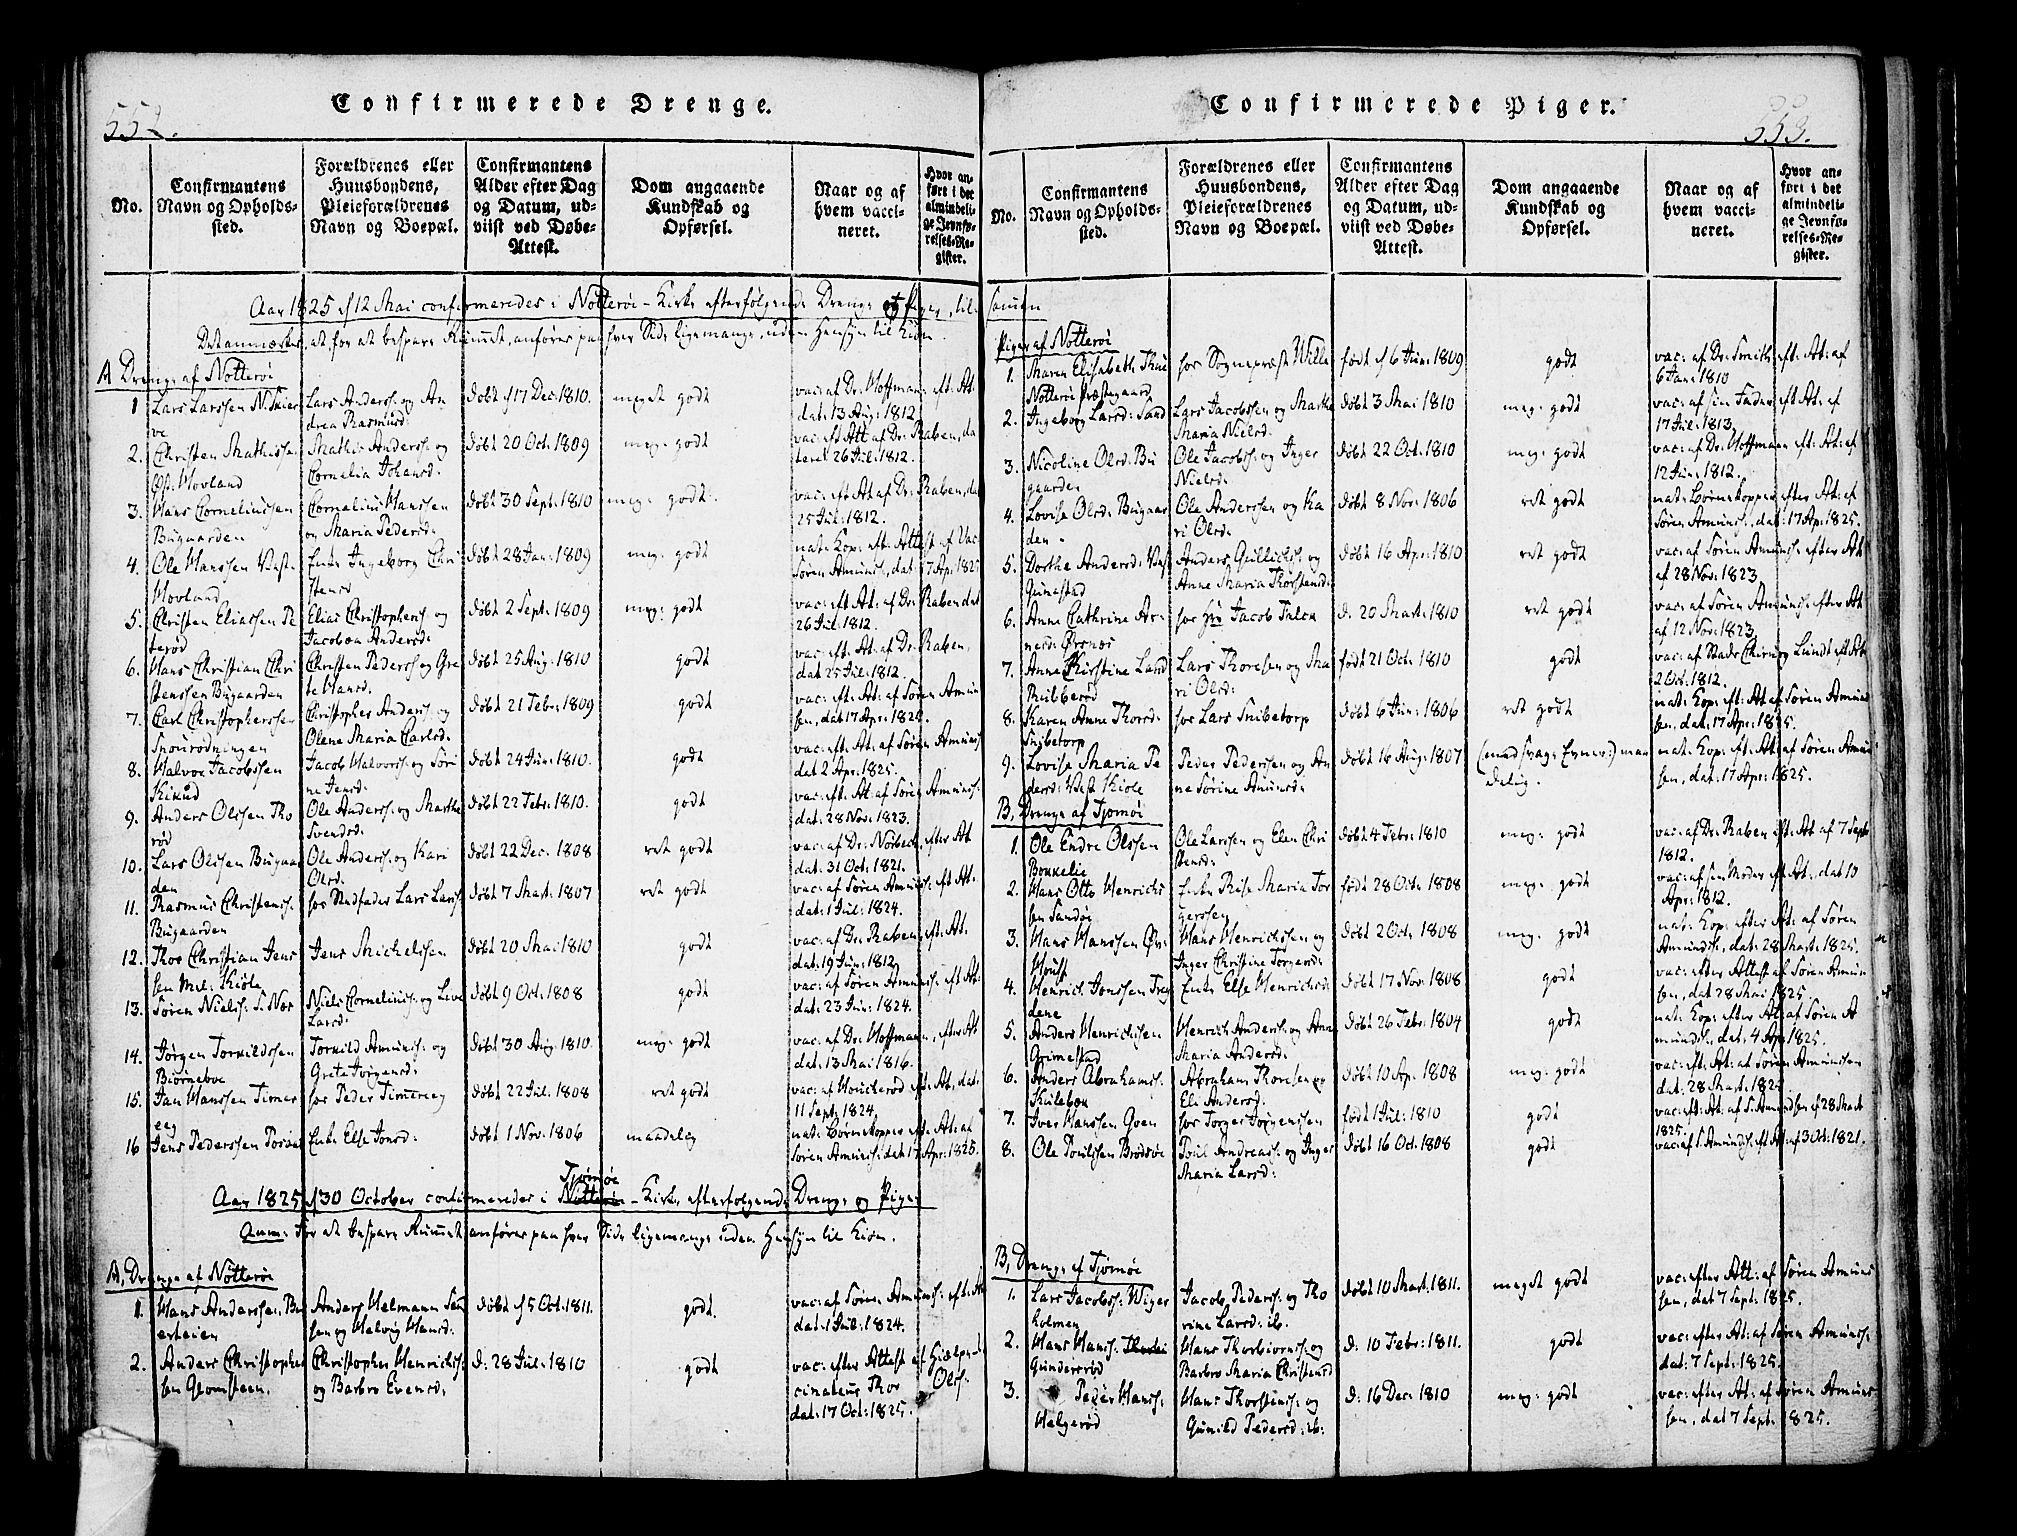 552.
Confirmerede Drenge.
No.
Confirmantens
Navn og Opholds-
sted.
Forældrenes eller
Huusbondens,
Pleieforældrenes
Navn og Boepæl.
Confirmantens
Alder efter Dag
og Datum, ud-
viist ved Døbe-
Attest.
Dom angaaende
Kundskab og
Opførsel.
Naar og af
hvem vacci-
neret.
Hvor an-
ført i det
almindeli-
ge Jevnfø-
relses-Re-
gister.
Aar 1825 d 12 Mai confirmeredes i Nøtterøe-Kirke efterfølgende Drenge og Piger, til-
Det anmærkes, at for at bespare Rummet, anføres paa hver Side ligemange, uden Hensyn til Kiøn.
A Drenge af Nøtterøe
1 Lars Larssen N. Skier
ve
Lars Anderss: og An
drea Rasmusd:
døbt d 17 Dec: 1810.
meget godt
vac: af Dr. Hoffmann eft: At:
dat: 13 Aug: 1812.
2. Christen Mathisse
Øst. Hovland
Mathis Anderss: og
Cornelia Johansd:
døbt 20 Oct: 1809
meg: godt
vac: eft. Att af Dr: Raben, da
teret 26 Jul: 1812.
3. Hans Corneliussen
Bugaarden
Cornelius Hanssen
og Maria Pedersd:
døbt 30 Sept: 1810
meg: godt.
vac: eft. At af Dr: Raben, da
25 Jul: 1812.
4. Ole Hanssen Vest-
Hovland
Enke Ingeborg Chri
stensd
døbt 28 Jan: 1809
meg: godt
nat: Kop: eft: Attest af Vac
Søren Amunds:, dat: 17 Ap: 1825
5. Christen Eliassen Te
terød
Elias Christophers: og
Jacobea Andersd:
døbt 2 Sept: 1809
meg: godt
vac: eft: At: af Dr: Raben dat
26 Jul: 1812.
6. Hans Christian Chri
stenssen Bugaarden
Christen Pederss: og Gre
te Hansd.
døbt 25 Aug: 1810
godt
vac: eft: At: af Dr: Raben,
dat 25 Jul: 1812.
7. Carl Christophersen
Christopher Anderss: og
Olene Maria Carlsd:
døbt 21 Febr: 1809
godt
vac: eft: At: af Søren Amun
sen, dat 17 Apr: 1825.
8. Halvor Jacobssen
Jacob Halvorss: og Søri
ne Jensd:
døbt 24 Jun: 1810.
godt
vac: eft. At: af Søren Amunss
dat 2 Apr: 1825.
9. Anders Olssen Tho
rød
Ole Anderss: og Marthe
Svendsd:
døbt 22 Febr: 1810.
godt
vac: eft: At: af Søren Amunss:
dat: 28 Nov: 1823.
10. Lars Olssen Bugaar
den
Ole Anderss: og Kari
Olsd:
døbt 22 Dec: 1808
ret godt
vac: af Dr: Norbech, efter At
dat: 31 Oct: 1821.
11. Rasmus Christenss:
Bugaarden
for Stedfader Lars Larss:
døbt 7 Mart: 1807
ret godt
vac: af Søren Amunss: eft At.
dat: 1 Jul: 1824.
12. Thor Christian Jens
sen Mel: Kiøle
Jens Michelssen
døbt 20 Mai 1810
godt
vac: af Dr: Raben, eft: At.
dat: 19 Jun: 1812.
13. Søren Nielss:
Niels Corneliuss: og Live
Larsd:
døbt 9 Oct: 1808
godt
vac: af Søren Amunss: eft At:
dat: 23 Jun: 1824.
14. Jørgen Torkildssen
Biørneboe
Torkild Amunss: og
Grete Jørgensd:
døbt 30 Aug: 1810.
meg: godt
vac: af Dr: Hoffmann, efter At
dat: 13 Mai: 1816.
15. Jan Hanssen Timer
eeg
for Peder Timereeg
døbt 22 Jul: 1808
ret godt
vac: af Horckerød eft. At: dat:
11 Sept: 1824.
16 Jens Pederssen
Enke Else Jonsd:
døbt 1 Nov: 1806
maadelig
nat: Børnekopper eft. At: af
Søren Amunss: dat 17 Apr: 1825.
Tjømøe
Aar 1825 d 30 October confirmeredes i Nøtterøe-Kirke efterfølgende Drenge og Piger
Anm: For at bespare Rummet anføres paa hver Side ligemange uden Hensyn til Kiøn.
A, Drenge af Nøtterøe
1. Hans Anderssen
Anders Helmann San
sen og Helvig Hansd:
døbt d 5 Oct: 1811.
godt.
vac: af Søren Amunss: eft. At
dat: 1 Jul: 1824.
2. Anders Christopher
sen Glomsteen.
Christopher Henrichss:
og Barbro Evensd:
d: 28 Jul: 1810
godt
vac: efter Attest af Hiælpevac
cinateur Thor Olss:
dat: 17 Oct: 1825.
553.
Confirmerede Piger.
No.
Confirmantens
Navn og Opholds-
sted.
Forældrenes eller
Huusbondens,
Pleieforældrenes
Navn og Boepæl.
Confirmantens
Alder efter Dag
og Datum, ud-
viist ved Døbe-
Attest.
Dom angaaende
Kundskab og
Opførsel.
Naar og af
hvem vacci-
neret.
Hvor an-
ført i det
almindeli-
ge Jevnfø-
relses-Re-
gister.
sammen
Piger af Nøtterøe
1. Maren Elisabeth Thue
Nøtterøe Præstegaard
for Sognepræst Wille
født d 6 Jun: 1809
godt
vac: af Dr: Smith eft: At: af
6 Jan: 1810
2. Ingeborg Larsd: Sand
Lars Jacobssen og Marthe
Maria Nielsd:
døbt 3 Mai 1810
meg: godt
vac: af sin Fader eft At: af
17 Jul: 1813.
3. Nicoline Olsd: Bu
gaarde
Ole Jacobss: og Inger
Nielsd:
døbt 22 Oct: 1810
meg: godt
vac: af Dr: Hoffmann eft: At: af
12 Jun: 1812.
4. Lovise Olsd: Bugaar
den
Ole Anderssen og Ka
ri Olsd:
døbt 8 Nov: 1806
ret godt
nat: Børnekopper efter At: af
Søren Amunss:, dat: 17 Ap: 1825.
5. Dorthe Andersd: Vest
Anders Gullichs: og
Anne Maria Thorstensd:
døbt 16 Apr: 1810
ret godt
vac: af Søren Amunss: efter At
af 28 Nov: 1823
6. Anne Cathrine Ar
nesd: Ørsnes
for Hr: Jacob Falck
d: 20 Mart: 1810
ret godt
vac: af Søren Amunss: efter At
af 12 Nov: 1823
7. Anne Kirstine Larsd
Lars Thoresen og Ma
ri Olsd:
født 21 Oct: 1810
godt
vac: af Stads Chirurg Lundt eft At
2 Oct: 1812.
8. Karen Anne Thorsd:
Snibetorp
for Lars Snibetorp
døbt 6 Jun: 1806
ret godt
nat: Kop: eft: At af Søren Amun
sen, dat: 17 Apr: 1825.
9. Lovise Maria Pe
dersd: Vest Kiøle
Peder Pederssen og An
ne Sørine Amunsd:
døbt 16 Aug: 1807
(med svage Evner:) maa
delig.
nat: Kop: eft: At: af Søren Amun
sen, dat: 17 Apr: 1825.
B, Drenge af Tjømøe
1. Ole Endre Olssen
Ole Larssen og Elen Chri
stensd:
døbt 4 Febr: 1810
meg: godt
vac: af Dr: Raben eft. At af 7 Sept
1812.
2. Hans Otto Henrichs
sen Sandøe
Enke Rise Maria Tor
gerssen
født 28 Oct: 1808
meg: godt
vac: af sin Moder eft At: dat 10
Apr: 1812.
3. Hans Hanssen
Hans Henrichssen og
Inger Christine Torgersd:
døbt 2 Oct: 1808
meg: godt
nat: Kop: efter At: af Søren
Amunds:, dat: 28 Mart: 1825.
4. Henrich Jonssen Treg
dene
Enke Else Henrichsd:
døbt 17 Nov: 1808
godt
vac: efter Attest af Søren Amun
sen, dat 28 Mai 1825.
5. Anders Henrichsen
Grimestad
Henrich Anderss: og Anne
Maria Andersd:
døbt 26 Febr: 1804
godt
nat: Kop: efter At af Søren A
munds:, dat: 4 Apr: 1825.
6. Anders Abrahamss:
Abraham Thoresen og
Eli Andersd:
døbt 10 Ap: 1808
meg: godt
vac: eft: At: af Søren Amunssen
dat: 28 Mart: 1825
7. Iver Hanssen Hven
for Torger Jørgenssen
født 1 Jul: 1810
godt
vac: eft: At: af S. Amundsen af 28 Mart
1825.
8. Ole Poulssen Brødsøe
Poul Andreass: og Inger
Maria Larsd:
døbt 16 Oct: 1808
godt
vac: af S. Amunds: eft At: af 3 Oct: 1821.
B, Drenge af Tjømøe
1. Lars Jacobss:
holmen
Jacob Pederss: og Tho
rine Larsd: ib.
døbt 10 Mart: 1811.
meget godt
vac: efter Att: af Søren Amuns
sen, dat 7 Sept: 1825.
2. Hans Hanss:
Gundersrød
Hans Thorbiornss: og
Barbro Maria Christensd
d: 10 Febr: 1811.
godt
vac: efter At: af Søren Amunss:
dat: 7 Sept: 1825.
3. Peder Hanss:
Helgerød
Hans Thorstenss: og
Gunild Pedersd: ib:
d: 16 Dec: 1810
meg: godt
vac: efter At: af Søren Amuns
sen, dat 7 Sept: 1825.